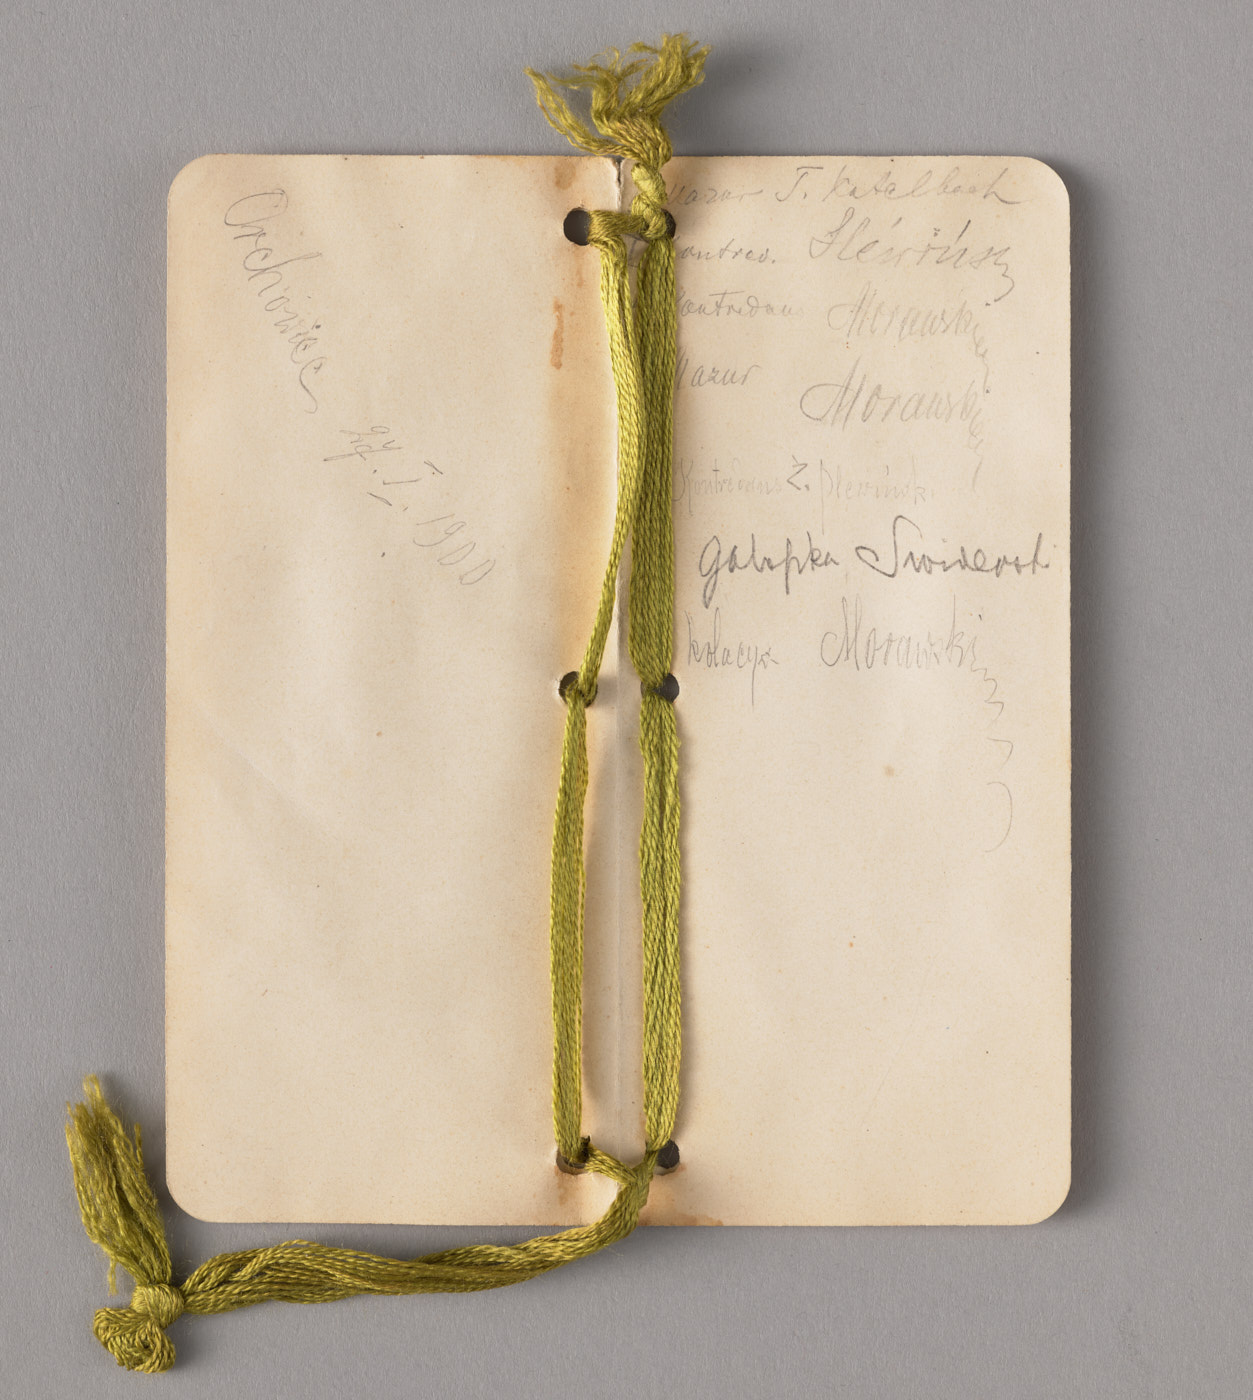 Orchowiec
1900
Mazur T. Katelbach
Kontred.
Kontredans Morawski
Mazur Morawski
Kontredans Ż. Plewiński
Galopka Swiderski
Kołacyk Morawski